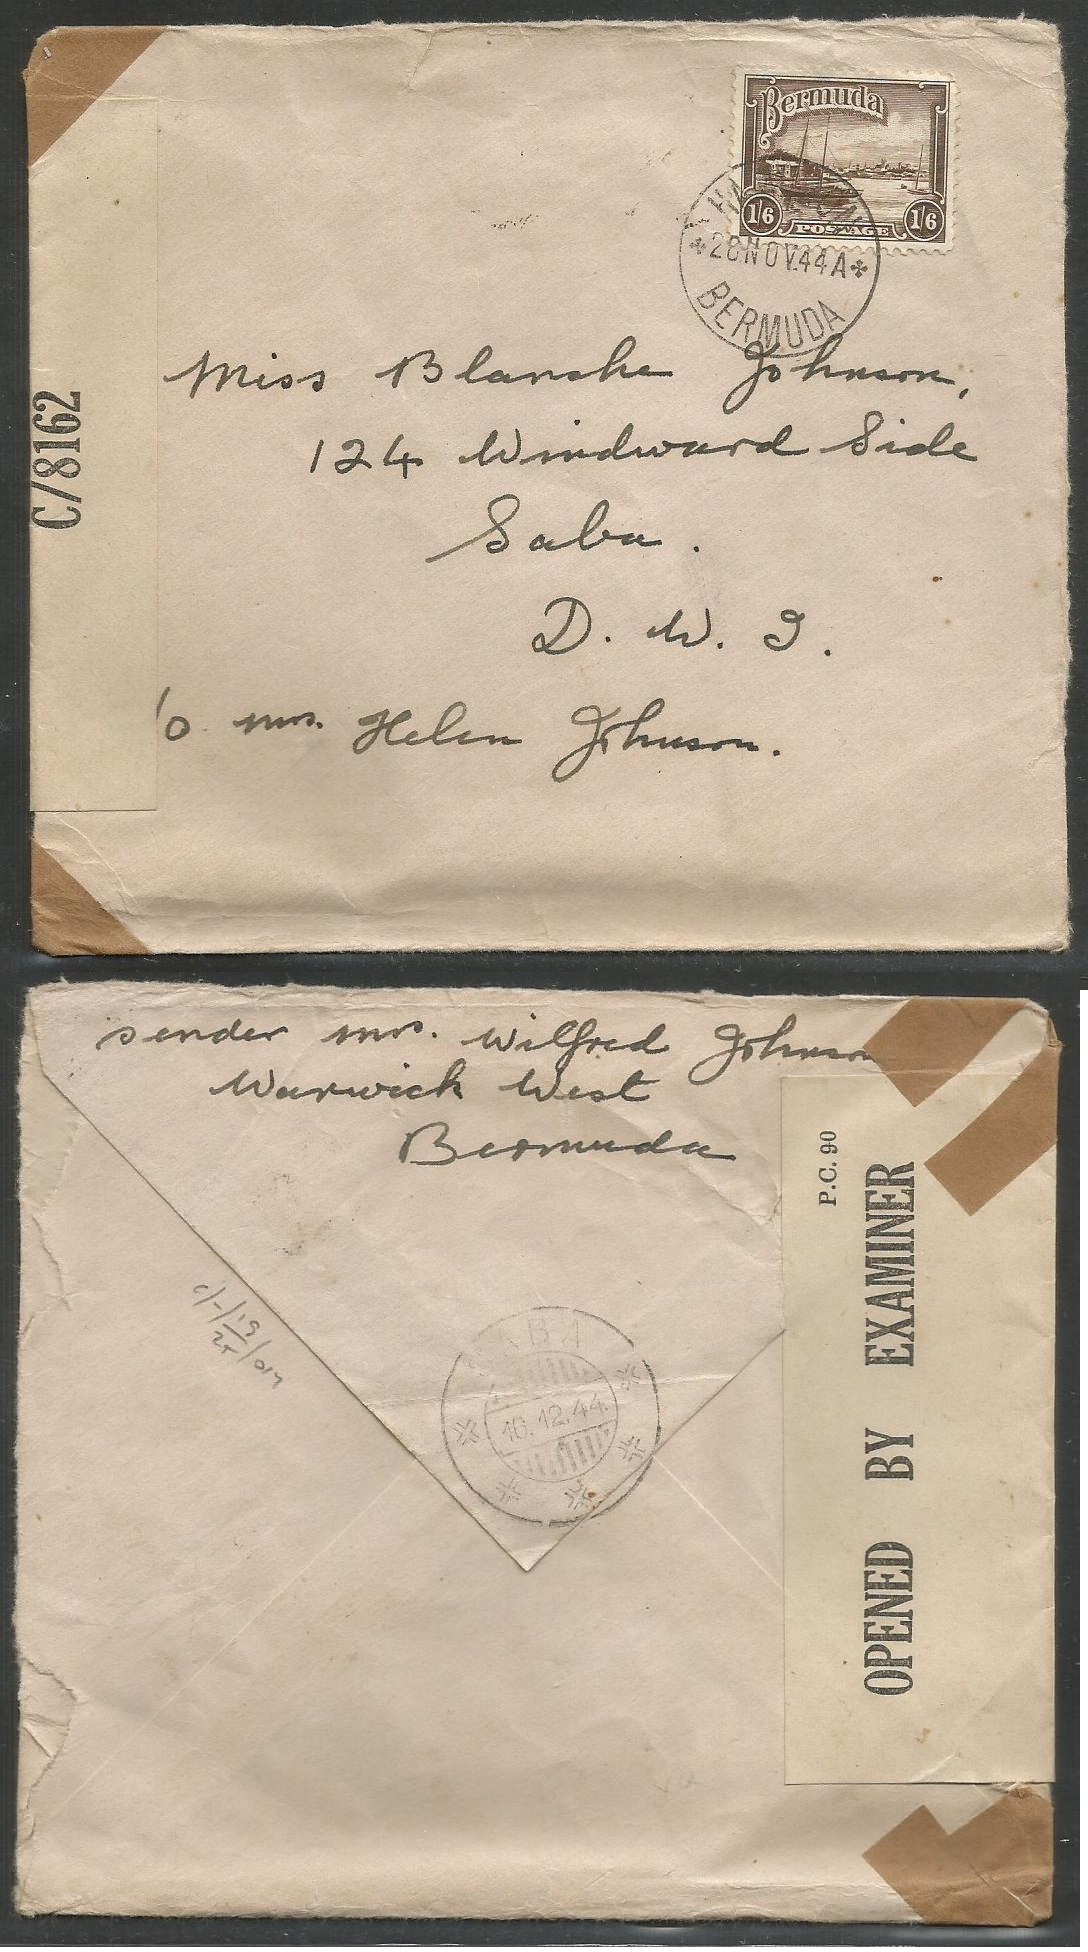 Bermuda
1/6 POSTAGE 1/6
28 NOV.44 A
BERMUDA
C/8162
Miss Blanche Johnson,
124 Windward Side
Saba.
D. W. I.
/o mrs. Helen Johnson.
sender mrs. Wilfred Johnson
Warwick West
Bermuda
P.C. 90
OPENED BY EXAMINER
SABA
16.12.44.